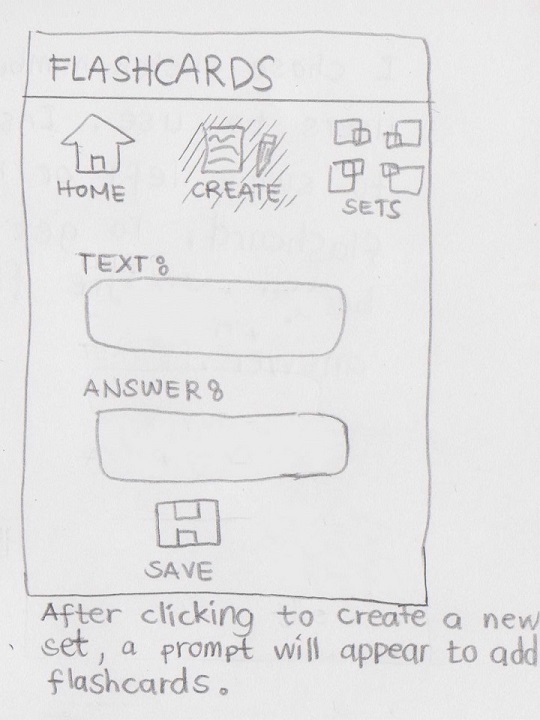 FLASHCARDS
HOME CREATE SETS
TEXT:
ANSWER:
SAVE
After clicking to create a new
set, a prompt will appear to add
flashcards.